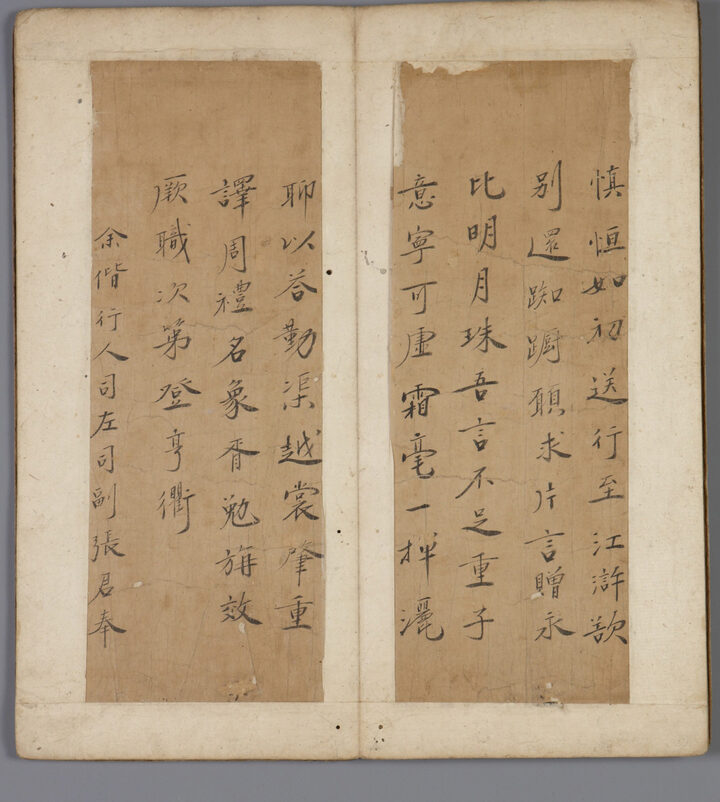 慎恒如初送行至江滸歘
别還踟蹰願求片言贈永
比明月珠吾言不足重子
意寧可虛霜毫一揮灑
聊以荅勤渠越裳肇重
譯周禮名象胥勉旃效
厥職次第登亨衢
余偕行人司左司副張君奉